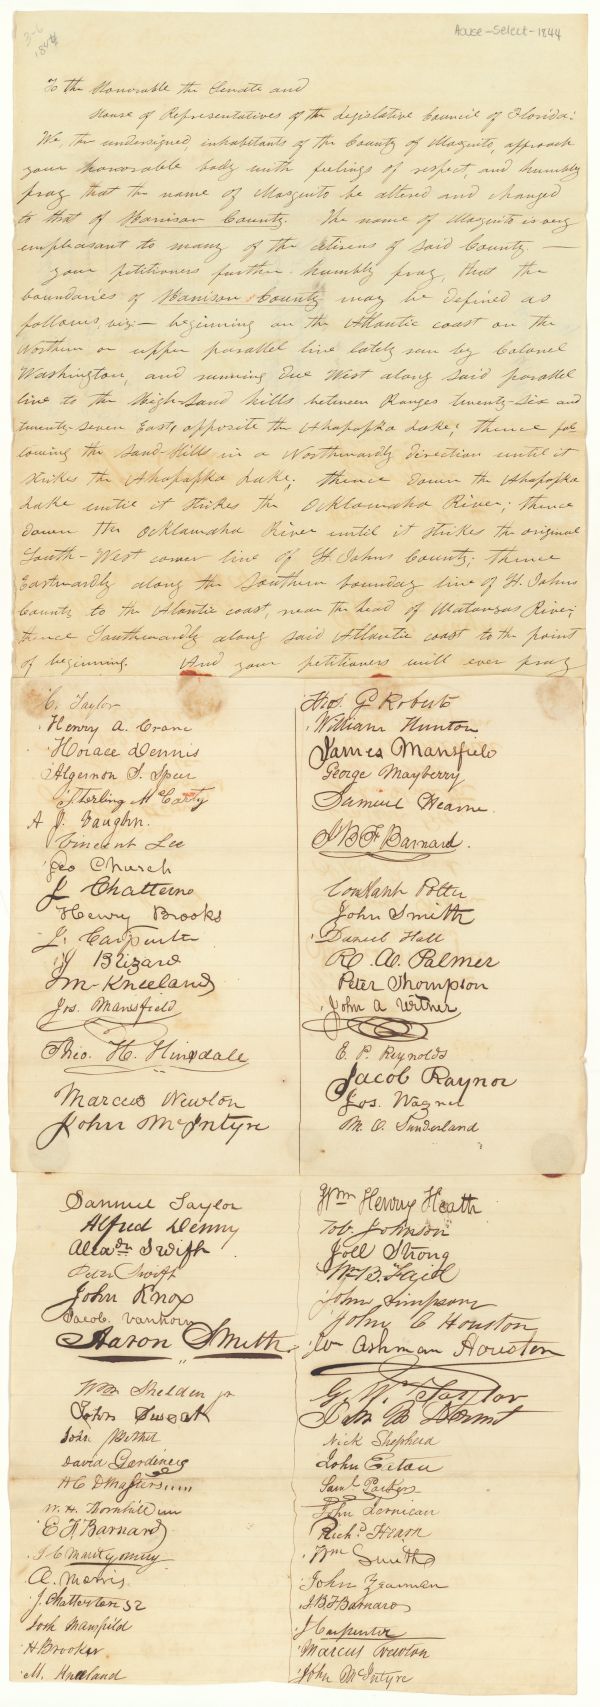 3-6
1844
House-Select-1844
To the Honorable the Senate and
House of Representatives of the Legislative Council of Florida:
We, the undersigned, inhabitants of the County of Mosquito, approach
your honorable body with feelings of respect, and humbly
pray that the name of Mosquito be altered and changed
to that of Harrison County. The name of Mosquito is very
unpleasant to many of the citizens of said County. —
your petitioners further humbly pray, that the
boundaries of Harrison County may be defined as
follows, viz:— beginning on the Atlantic coast on the
Northern or upper parallel line lately run by Colonel
Washington, and running due West along said parallel
line to the High-Sand hills between Ranges twenty-six and
twenty-seven East, opposite the Ahapopka Lake; thence fol-
lowing the Sand-Hills in a Northwardly direction until it
strikes the Ahapopka Lake; thence down the Ahapopka
Lake until it strikes the Ocklawaha River; thence
down the Ocklawaha River until it strikes the original
South-West corner line of St. Johns County; thence
Eastwardly along the Southern boundary line of St. Johns
County to the Atlantic coast near the head of Matanzas River;
thence Southwardly along said Atlantic coast to the point
of beginning. And your petitioners will ever pray
C. Taylor
Henry A. Crane
Horace Dennis
Algernon S. Speer
Sterling McCarty
A J. Vaughn.
Vincent Lee
Geo Church
J Chatterno
Henry Brooks
J. Carpenter
J Blizard
M Kneeland
Jos. Mansfield
Theo. H. Hinsdale
Marcus Newton
John McIntyre
Thos. G Roberts
William Hunton
James Mansfield
George Mayberry
Samuel Hearne
J B F Barnard.
Constant Potter
John Smith
Daniel Hall
R. A. Palmer
Peter Thompson
John A
E. P. Reynolds
Jacob Raynor
Jos. Wagner
M. O. Sunderland
Samuel Taylor
Alfred Denny
Alexdr Swift
Peter Swift
John Knox
Jacob Vanhorn
Aaron Smith
Wm Shelden jr
John Sweat
John
David Gardiner
W. H.
E F Barnard
J C Montgomery
A. Morris
J. Chatterton
Josh Mansfield
H Brooker
M. Kneeland
Wm Henry Heath
Tob Johnson
Joel Strong
Wm B.
John Simpson
John C Houston
Ashman Houston
G. W. Taylor
Nick Shepherd
John
Saml Parkers
John Lernican
Richd Hearn
Wm Smith
John Yearman
J B F Barnard
J Carpenter
Marcus Newton
John McIntyre